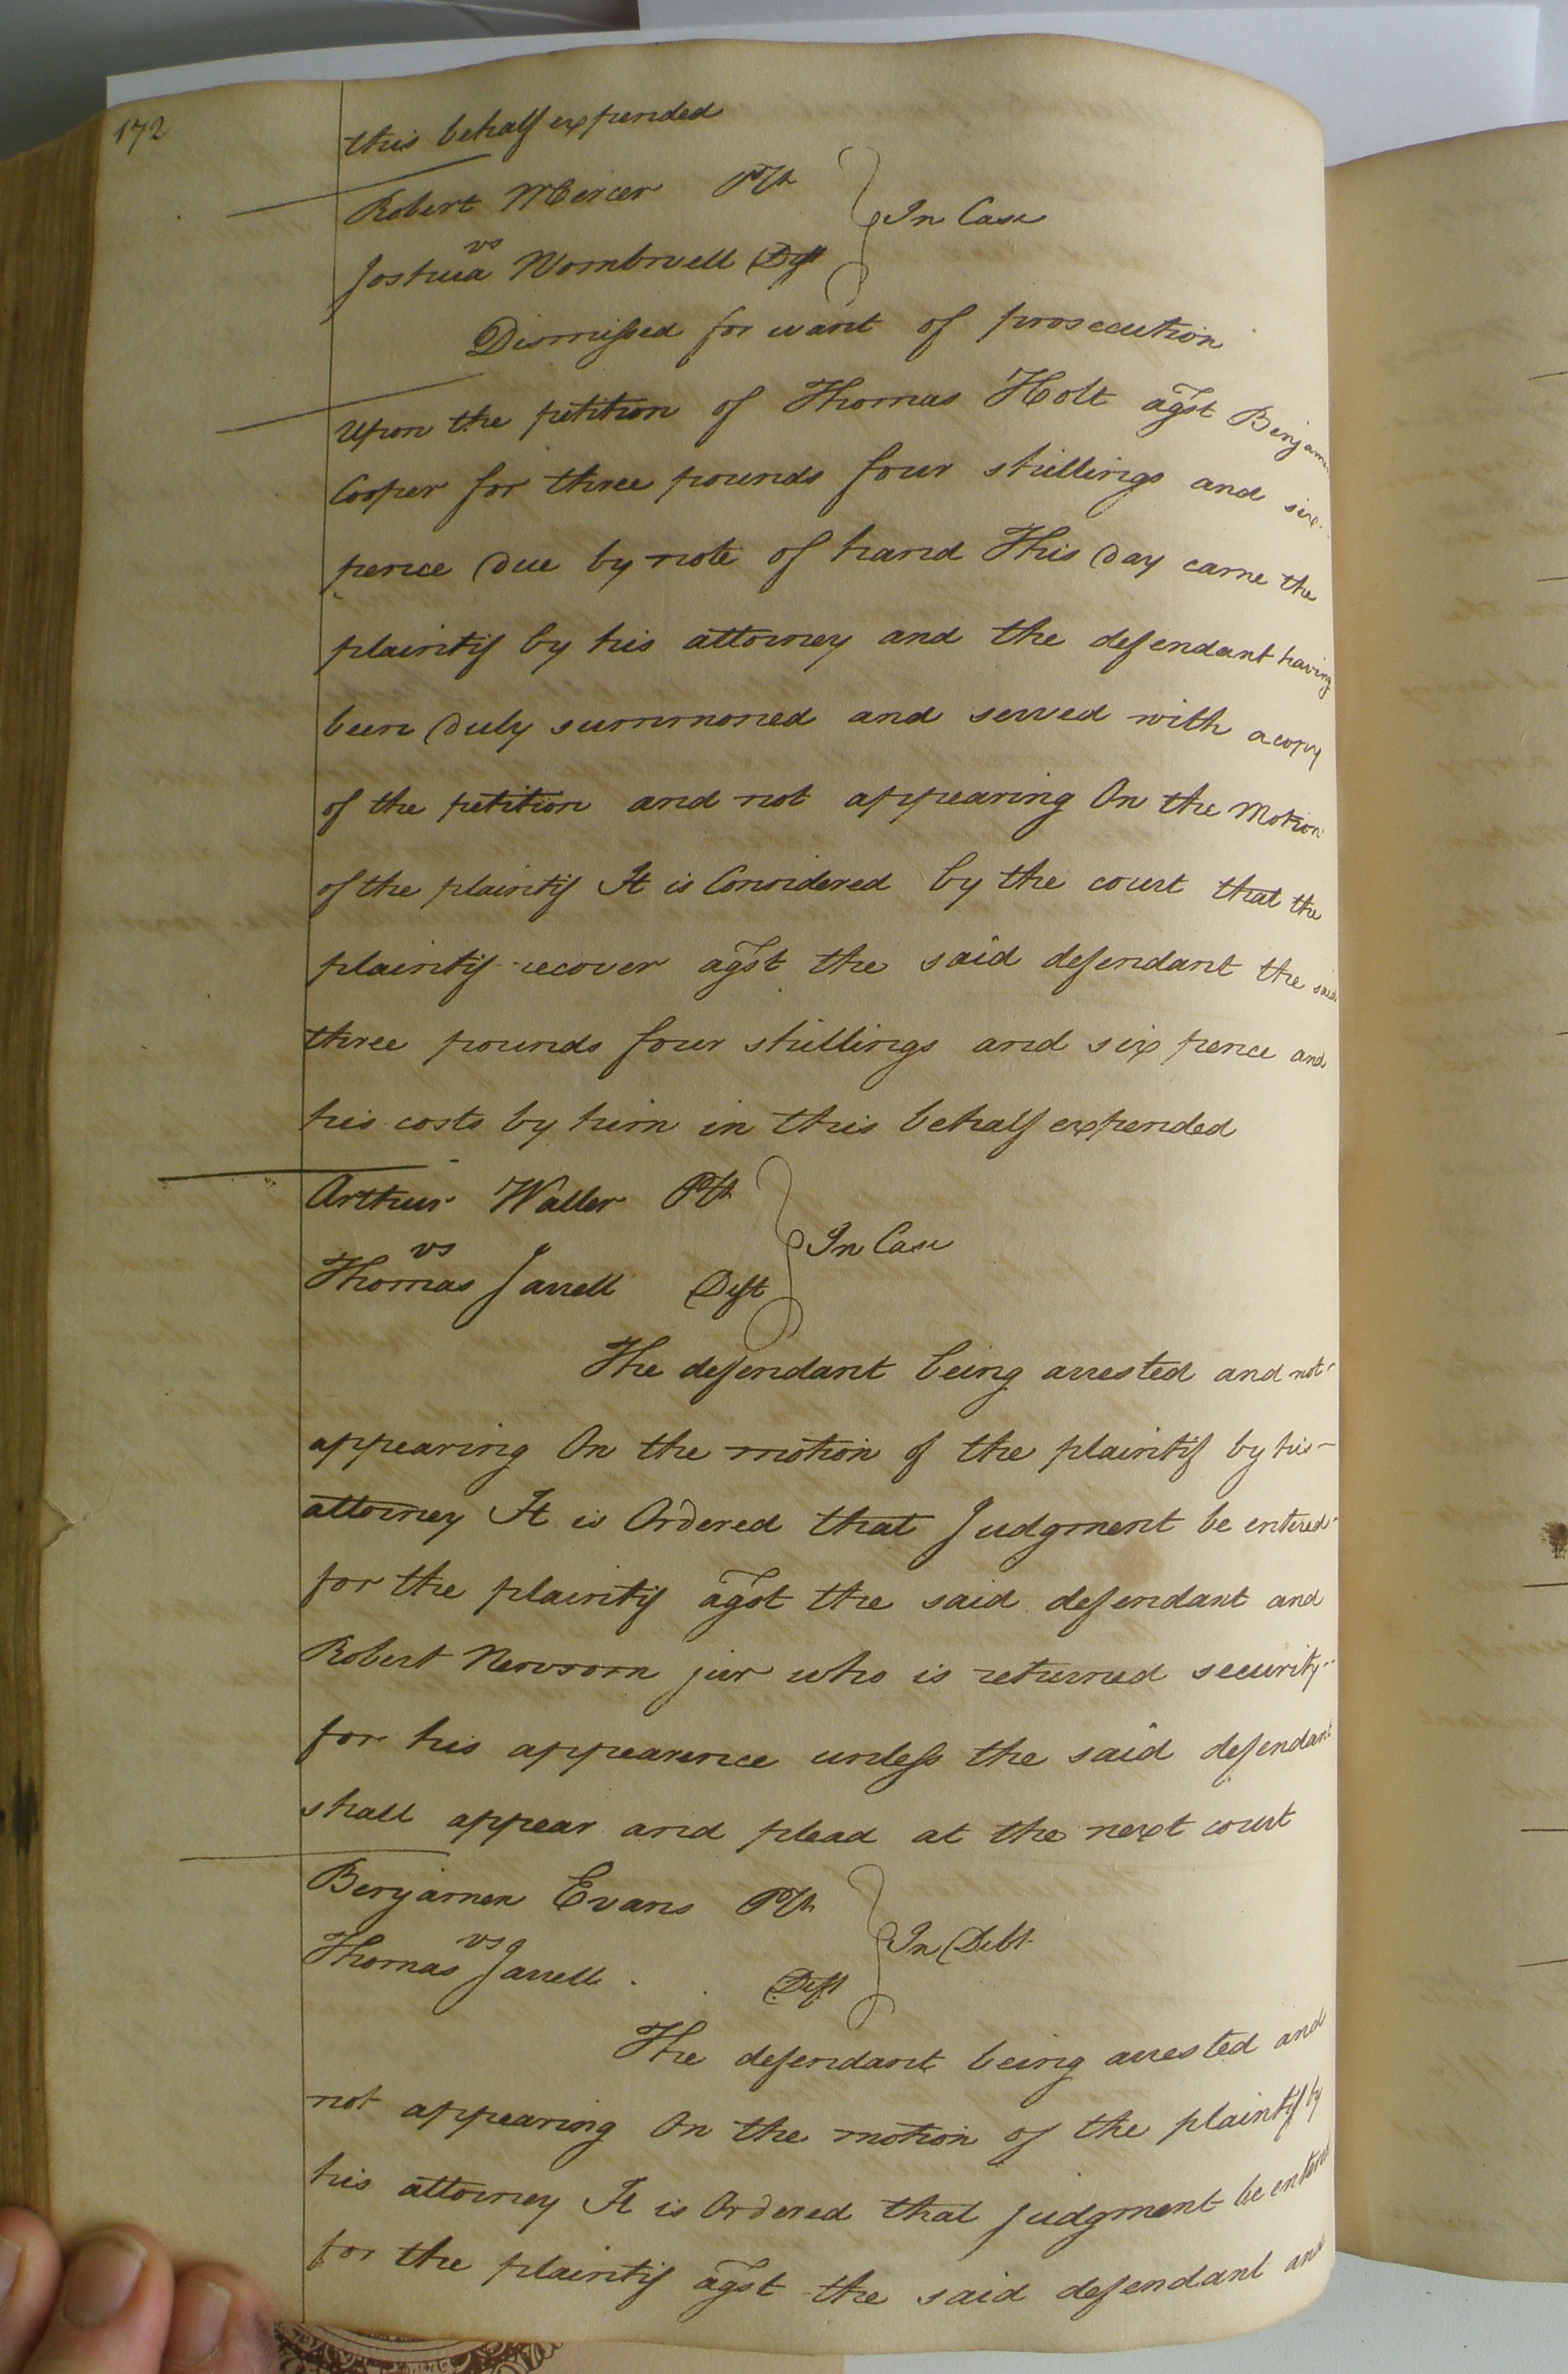 172
this behalf expended
Robert Mercer Plt
vs
In Case
Joshua Wombwell Deft
Dismissed for want of prosecution
Upon the petition of Thomas Holt agst Benjamen
Cooper for three pounds four shillings and six
pence Due by note of hand This Day came the
plaintif by his attorney and the defendant having
been Duly summoned and served with a copy
of the petition and not appearing On the Motion
of the plaintif It is Considered by the court that the
plaintif recover agst the said defendant the said
three pounds four shillings and six pence and
his costs by him in this behalf expended
Arthur Waller Plt
vs
In Case
Thomas Jarrell Deft
The defendant being arrested and not
appearing On the motion of the plaintif by his
attorney It is Ordered that Judgment be entered
for the plaintif agst the said defendant and
Robert Newsom jur who is returned security
for his appearence unless the said defendant
shall appear and plead at the next court
Benjamen Evans Plt
vs
In Debt
Thomas Jarrell Deft
The defendant being arrested and
not appearing On the motion of the plaintif by
his attorney It is Ordered that Judgment be entered
for the plaintif agst the said defendant and